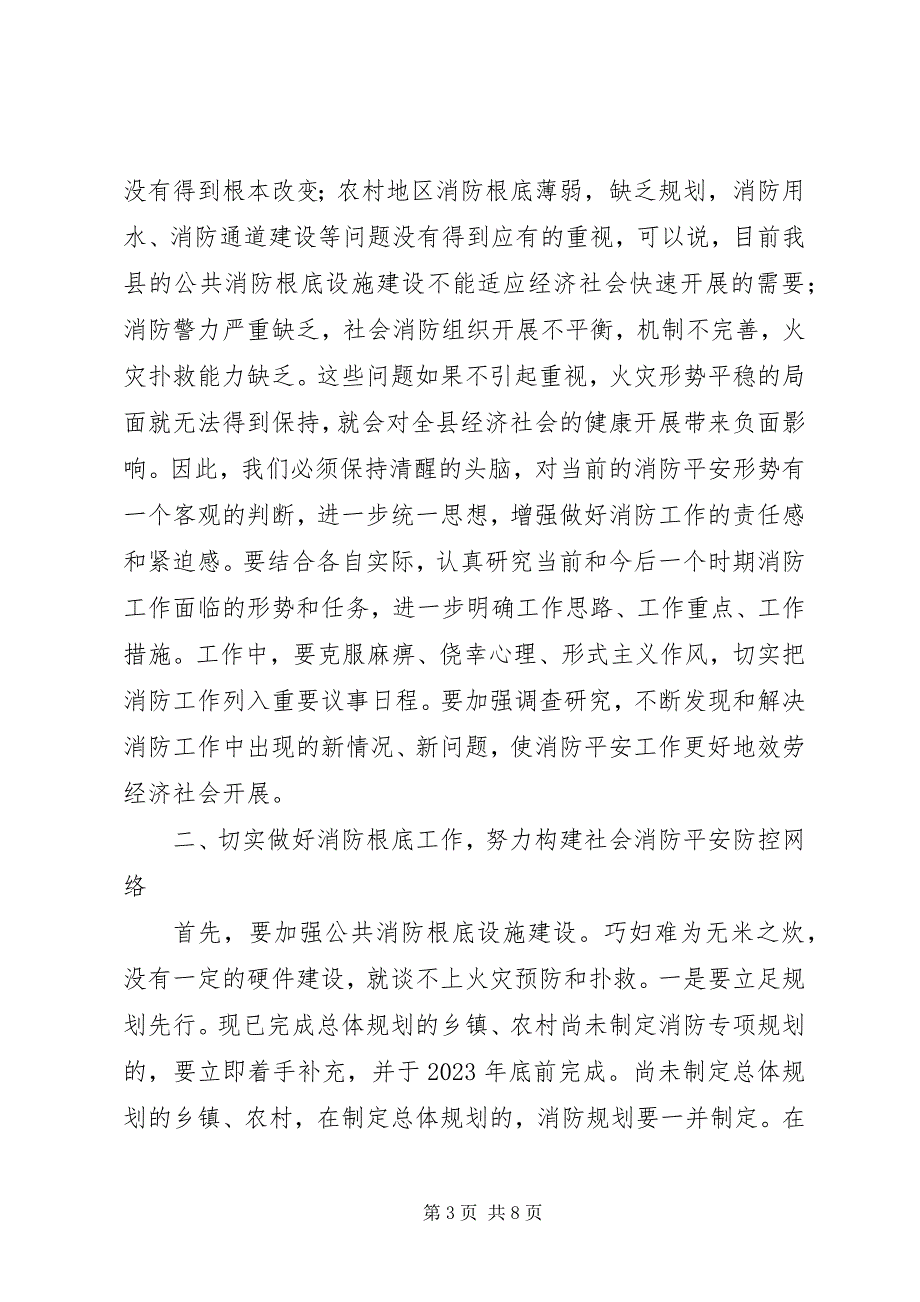 没有得到根本改变；农村地区消防根底薄弱，缺乏规划，消防用
水、消防通道建设等问题没有得到应有的重视，可以说，目前我
县的公共消防根底设施建设不能适应经济社会快速开展的需要；
消防警力严重缺乏，社会消防组织开展不平衡，机制不完善，火
灾扑救能力缺乏。这些问题如果不引起重视，火灾形势平稳的局
面就无法得到保持，就会对全县经济社会的健康开展带来负面影
响。因此，我们必须保持清醒的头脑，对当前的消防平安形势有
一个客观的判断，进一步统一思想，增强做好消防工作的责任感
和紧迫感。要结合各自实际，认真研究当前和今后一个时期消防
工作面临的形势和任务，进一步明确工作思路、工作重点、工作
措施。工作中，要克服麻痹、侥幸心理、形式主义作风，切实把
消防工作列入重要议事日程。要加强调查研究，不断发现和解决
消防工作中出现的新情况、新问题，使消防平安工作更好地效劳
经济社会开展。
二、切实做好消防根底工作，努力构建社会消防平安防控网
络
首先，要加强公共消防根底设施建设。巧妇难为无米之炊，
没有一定的硬件建设，就谈不上火灾预防和扑救。一是要立足规
划先行。现已完成总体规划的乡镇、农村尚未制定消防专项规划
的，要立即着手补充，并于 2023 年底前完成。尚未制定总体规
划的乡镇、农村，在制定总体规划的，消防规划要一并制定。在
第 3 页 共 8 页